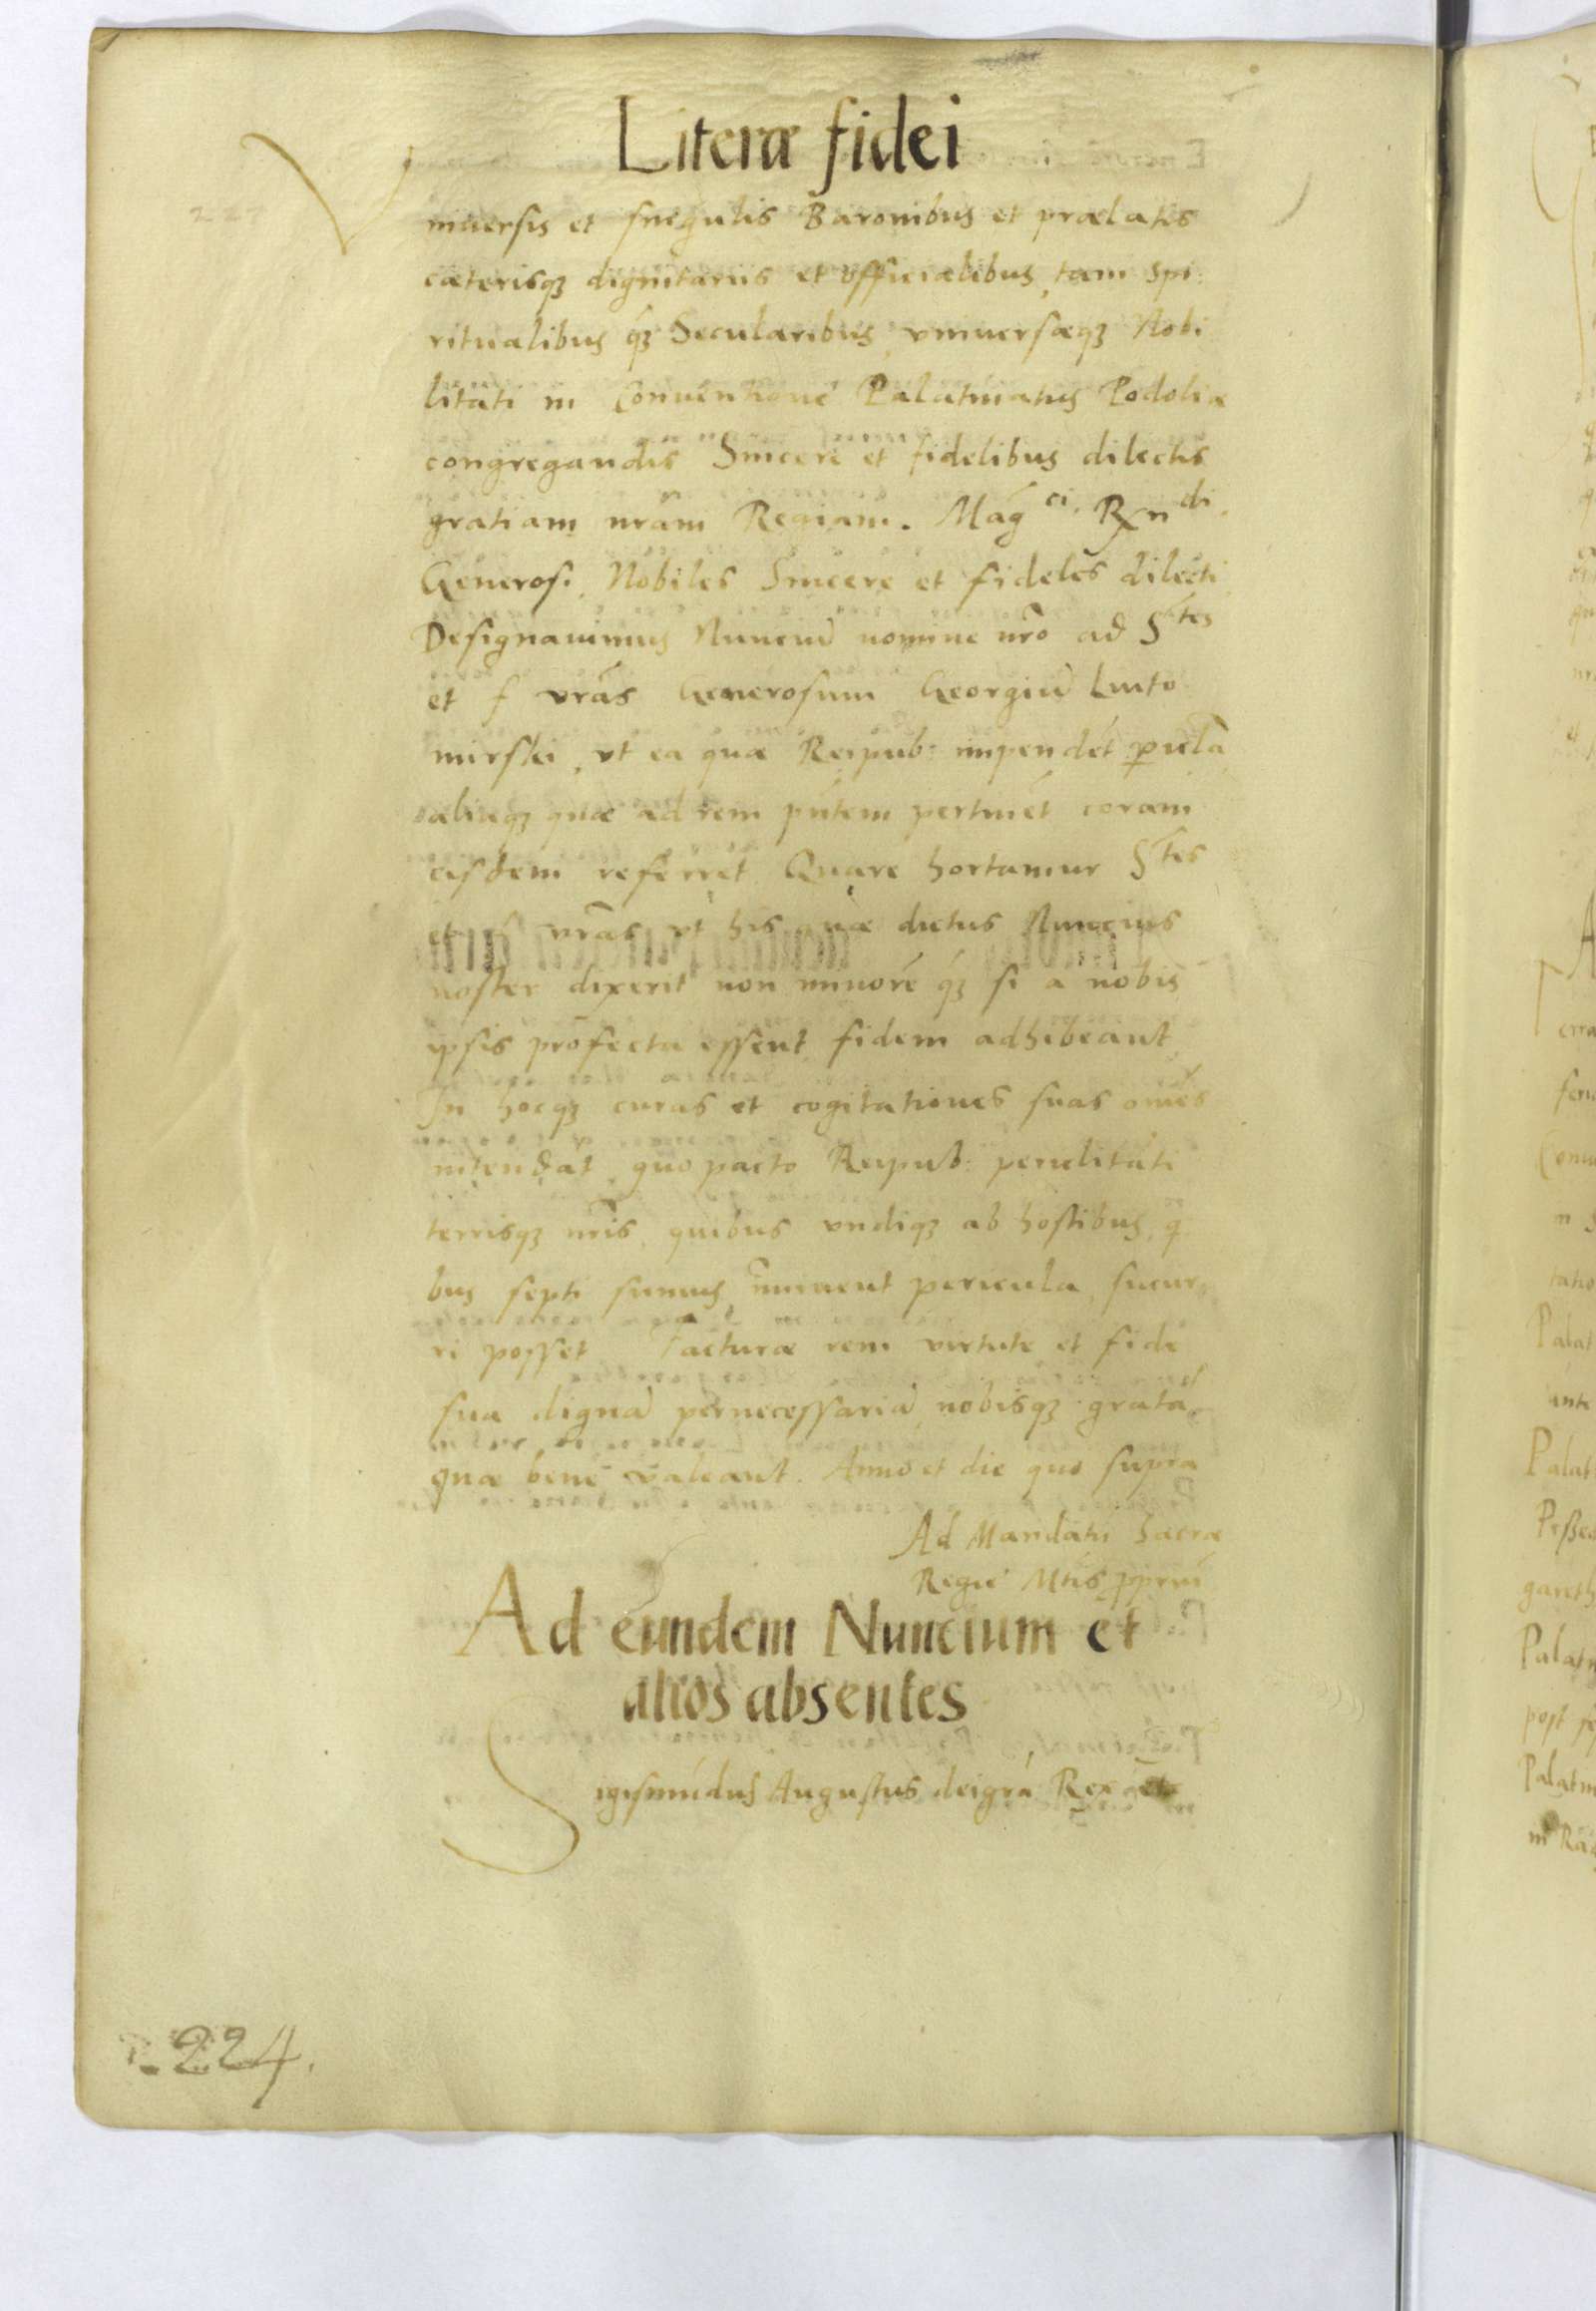 Literæ fidei
Vniuersis et singulis Baronibus et prælatis
cæterisqʒ dignitariis et officialibus, tam spi
ritualibus qʒ́ Secularibus, vniuersæqʒ Nobi
litati in Conuentione Palatinatus Podoliæ
congregandis Sincere et fidelibus dilectis
gratiam nrãm Regiam. Mag̃ci, Rxndi,
Generosi, Nobiles Sincere et fideles dilecti,
Designauimus Nunciũ nomine nrõ ad Stes
et f vrãs Generosum Georgiũ Luto
mirski, vt ea quæ Reipub: impendẽt picła
aliaqʒ quæ ad rem pñtem pertinẽt coram
eisdem referret Quare hortamur Stes
et f vrãs vt his quæ dictus Nuncius
noster dixerit non minorẽ qʒ́ si a nobis
ipsis profecta essent fidem adhibeant,
In hocqʒ curas et cogitationes suas omẽs
intendãt, quo pacto Reipub: periclitãti
terrisqʒ nrĩs, quibus vndiqʒ ab hostibus, q̃
bus septi sumus, iminent pericula, sucur,
ri posset Facturæ rem virtute et fide
sua dignã pernecessariã, nobisqʒ gratã,
quæ bene valeant. Anno et die quo supra
Ad Mandatũ Sacræ
Regie Mtis ppriũ
Ad eundem Nuncium et
alios absentes
Sigismũdus Augustus dei grã Rex etc
224.